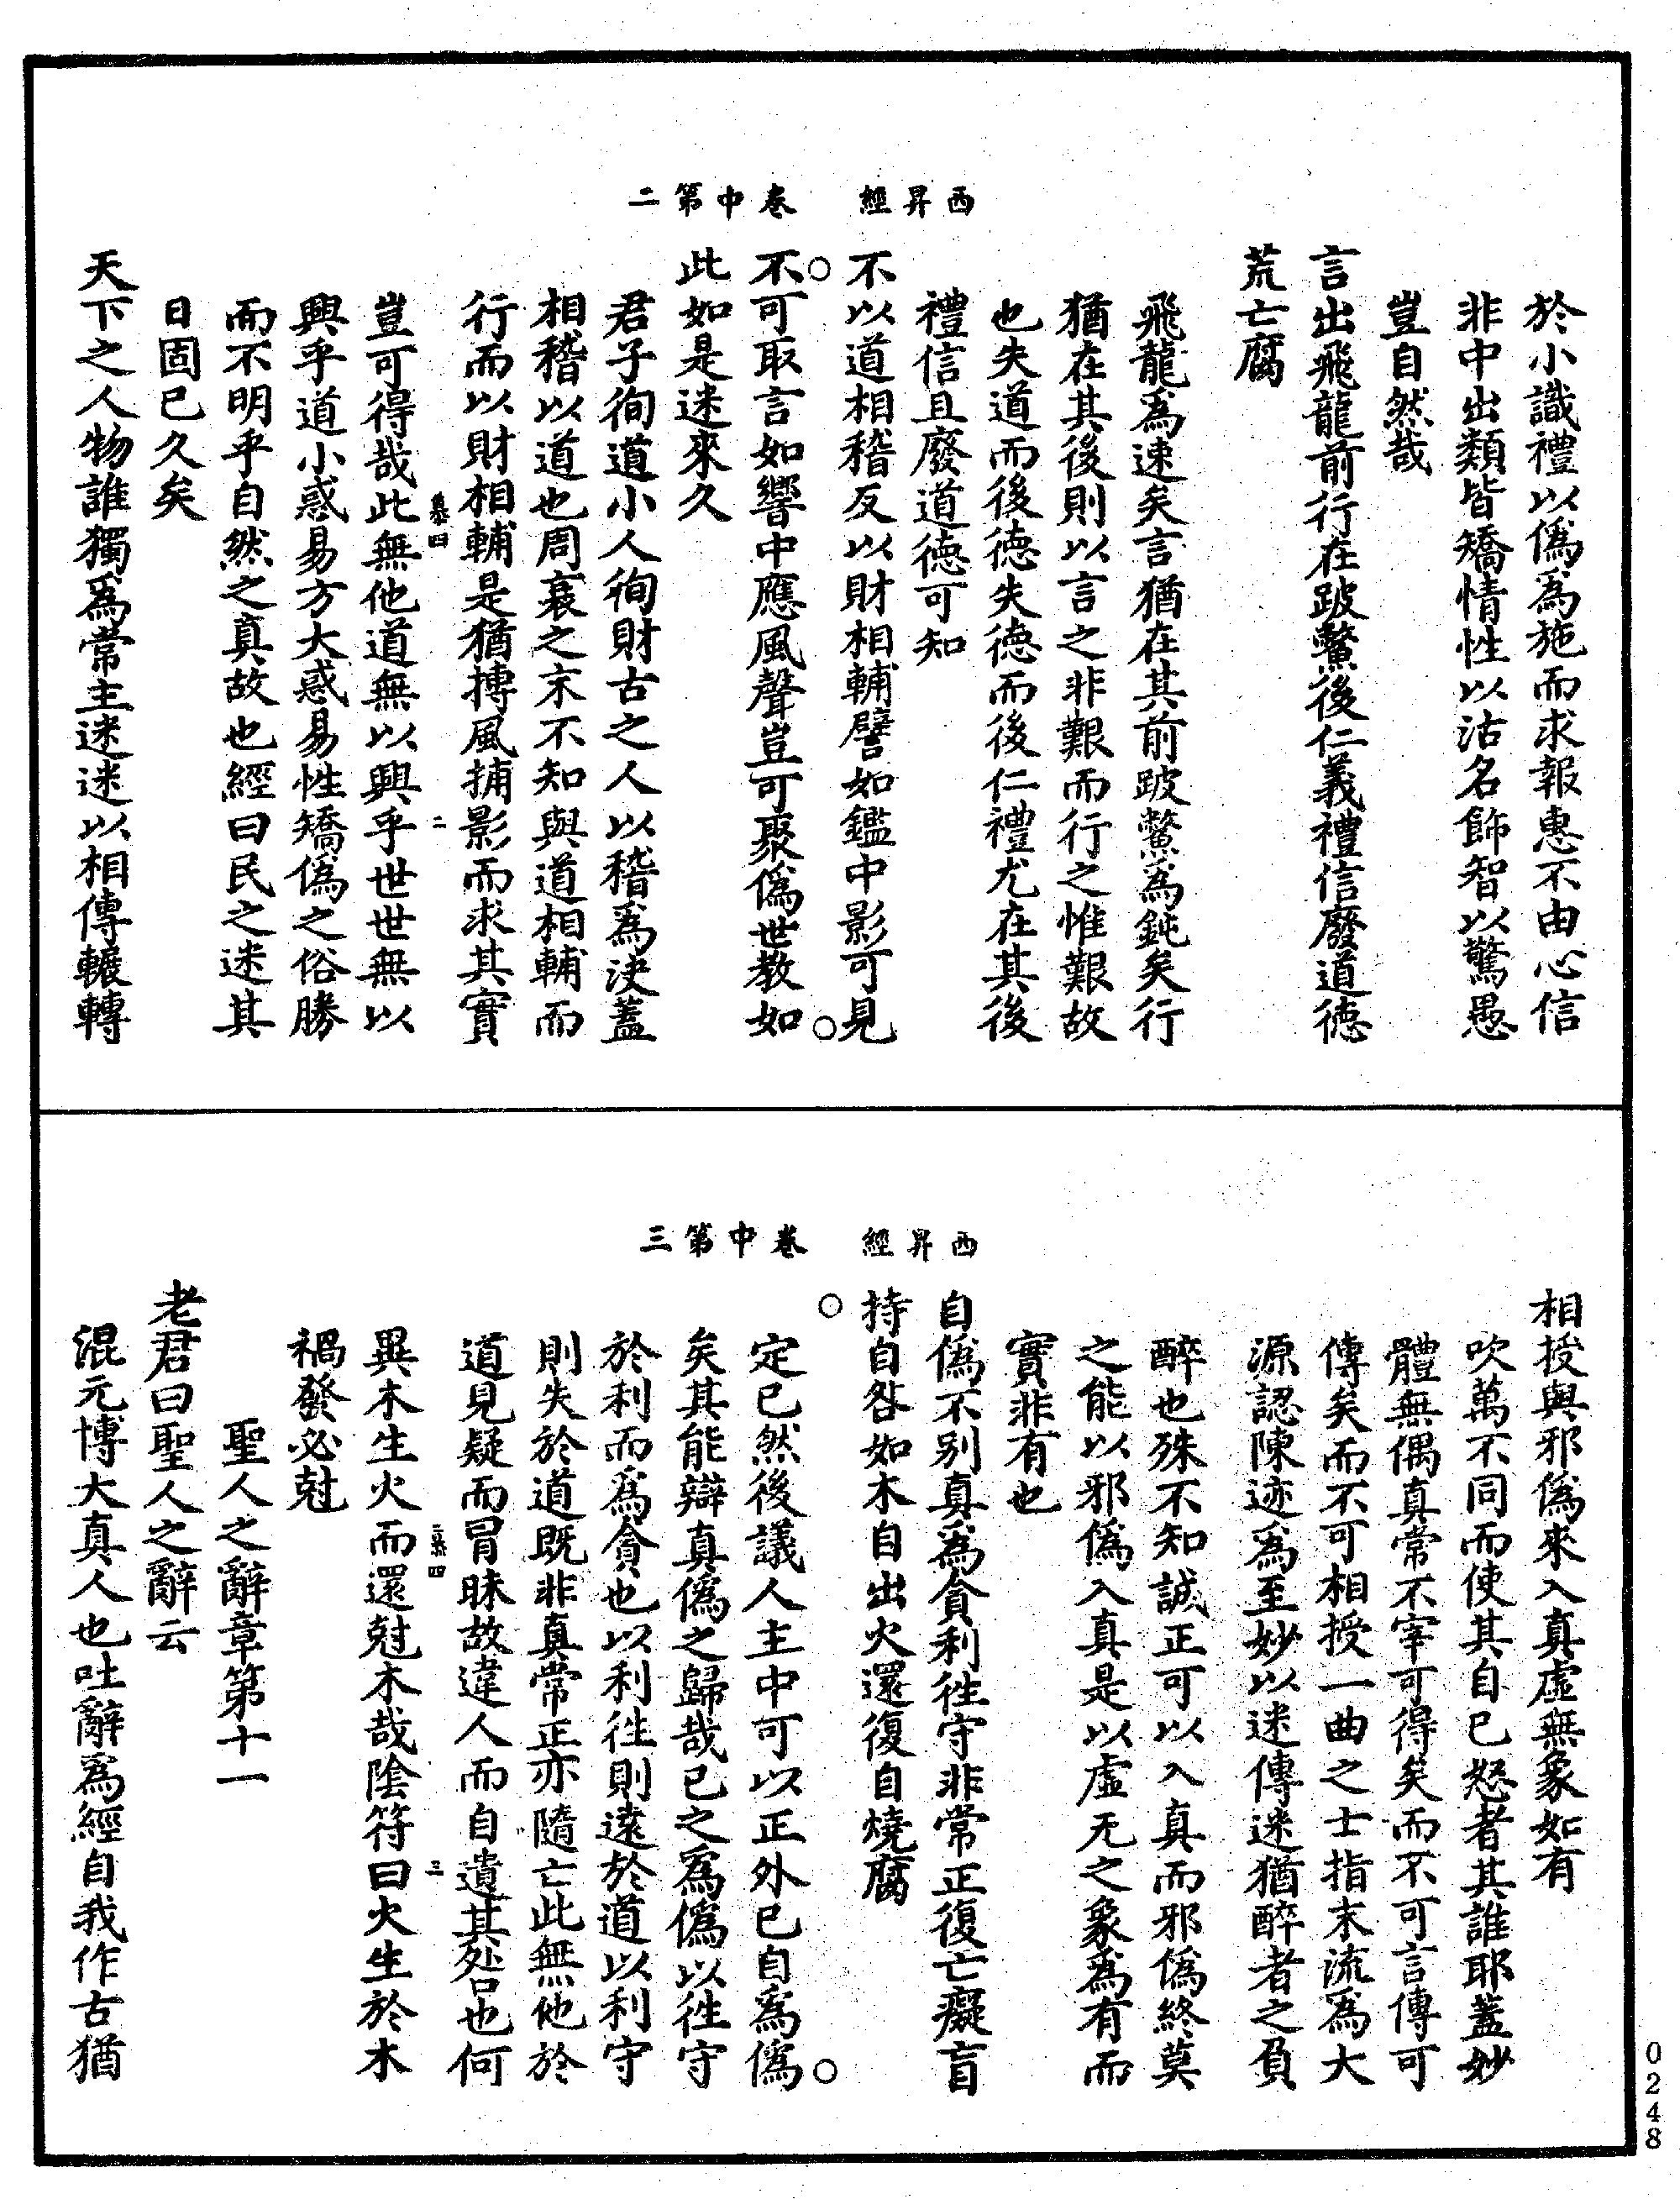 西昇經　卷中第二
於小識禮以僞爲施而求報惠不由心信
非中出類皆矯情性以沽名飾智以驚愚
豈自然哉
言出飛龍前行在跛鱉後仁義禮信廢道德
荒亡腐
飛龍爲速矣言猶在其前跛鱉爲鈍矣行
猶在其後則以言之非艱而行之惟艱故
也失道而後德失德而後仁禮尤在其後
禮信且廢道德可知
不以道相稽反以財相輔譬如鑑中影可見
不可取言如響中應風聲豈可聚僞世教如
此如是迷來久
君子徇道小人徇財古之人以稽爲決蓋
相稽以道也周衰之末不知與道相輔而
行而以財相輔是猶摶風捕影而求其實
豈可得哉此無他道無以興乎世世無以
興乎道小惑易方大惑易性矯僞之俗勝
而不明乎自然之真故也經曰民之迷其
日固已久矣
天下之人物誰獨爲常主迷迷以相傳輾轉
西昇經　卷中第三
相授與邪僞來入真虛無象如有
吹萬不同而使其自已怒者其誰耶蓋妙
體無偶真常不宰可得矣而不可言傳可
傳矣而不可相授一曲之士指末流爲大
源認陳迹爲至妙以迷傳迷猶醉者之負
醉也殊不知誠正可以入真而邪僞終莫
之能以邪僞入真是以虛无之象爲有而
實非有也
自僞不别真爲貪利徃守非常正復亡癡盲
持自咎如木自出火還復自燒腐
定已然後議人主中可以正外已自爲僞
矣其能辯真僞之歸哉已之爲僞以徃守
於利而爲貪也以利徃則遠於道以利守
則失於道既非真常正亦隨亡此無他於
道見疑而冐昧故違人而自遺其咎也何
異木生火而還尅木哉陰符曰火生於木
禍發必尅
聖人之辭章第十一
老君曰聖人之辭云
混元博大真人也吐辭爲經自我作古猶
0248